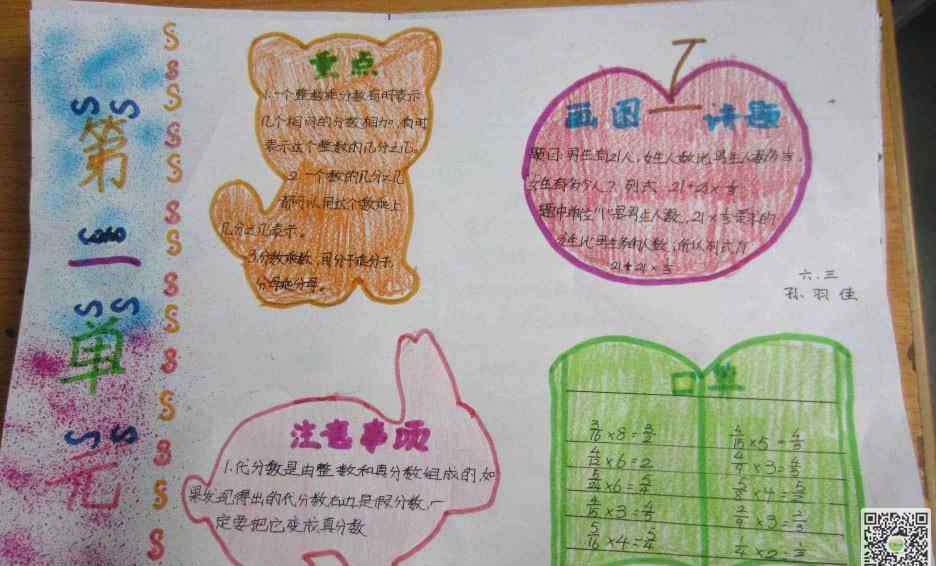 第一单元
重点
1.一个整数乘分数有时表示
几个相同的分数相加,有时
表示这个整数的几分之几。
2.一个数的几分之几
都可以用这个数乘上
几分之几表示。
3.分数乘数,用分子乘分子,
分母乘分母。
画图 讲题
题目:男生有21人,女生人数比男生人数多
女生有多少人?列式
题中单位"1"是男生人数,
女生比男生多的人数,所以列式为
六.三
孙羽佳
注意事项
1.代分数是由整数和真分数组成的,如
果发现得出的代分数右边是假分数,一
定要把它变成真分数
口算
3/16×8=3/2
4/12×6=2
5/24×6=5/4
4/15×3=4/5
5/16×4=5/4
4/15×5=4/3
4/9×3=4/3
5/8×4=5/2
2/9×3=2/3
1/4×2=1/2